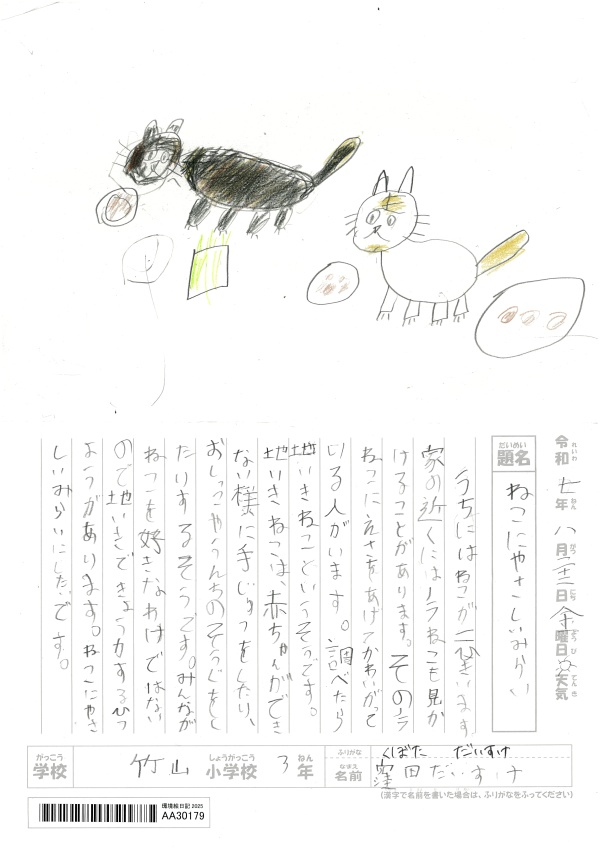 令和七年八月二十二日金曜日
題名 ねこにやさしいみらい
うちにはねこが一ぴきいます
家の近くにはノラねこも見か
けることがあります。そのノラ
ねこにえさをあげてかわいがって
いる人がいます。調べたら
地いきねこというそうです。
地いきねこは、赤ちゃんができ
ない様に手じゅつをしたり、
おしっこやうんちのそうじをし
たりするそうです。みんなが
ねこを好きなわけではない
ので地いきできょう力するひつ
ようがあります。ねこにやさ
しいみらいにしたいです。
学校 竹山小学校 3年
ふりがな くぼた だいすけ
名前 窪田だいすけ
(漢字で名前を書いた場合は、ふりがなをふってください)
環境絵日記 2025
AA30179